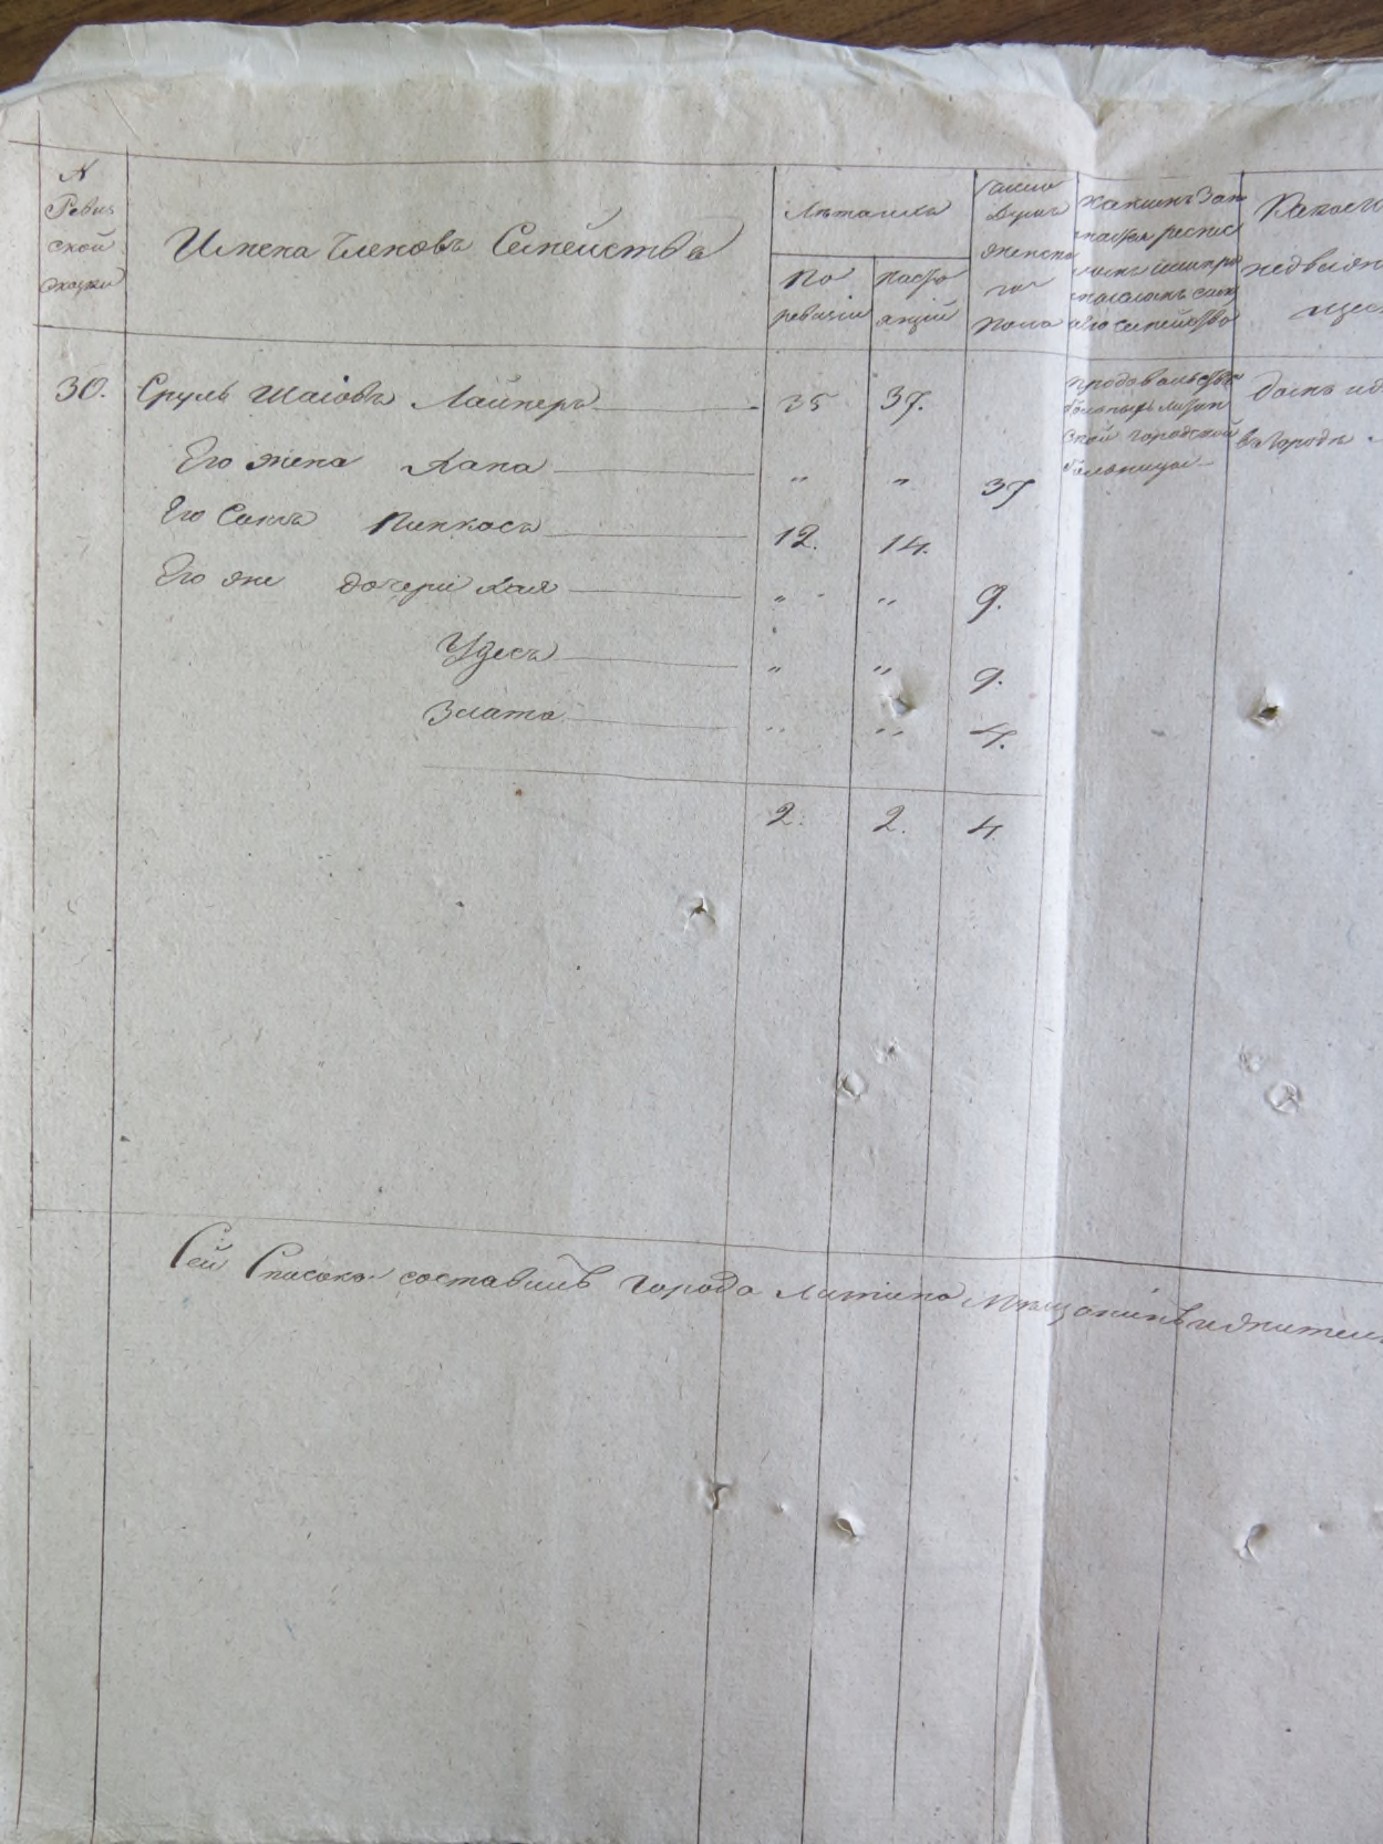 №
Ревиз
ской
сказки
Имена Членовъ Семейства
Лѣтами
по
ревизіи
насто
ящій
число
Душъ
женска
го
пола
какимъ зан
его семейство
недвижи
30. Сруль Шаіовъ Лайнеръ 35 37.
продовольств
ской городской
больницы
домъ
въ городѣ
Его жена Хана " " 37
Его Сынъ Пинкасъ 12. 14.
Его же дочери Хая " " 9.
Удесъ " " 9.
Злата " " 4.
2. 2. 4.
Сей Списокъ составилъ города Литина Мѣщанинъ и жител